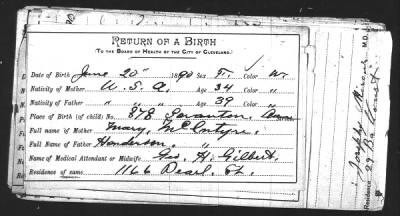 RETURN OF A BIRTH
(TO THE BOARD OF HEALTH OF THE CITY OF CLEVELAND.)
Date of Birth June 20" 1890 Sex F. Color W.
Nativity of Mother U. S. A. Age 34 Color "
Nativity of Father " " " Age 39 Color "
Place of Birth (of child) No. 878 Scranton
Full name of Mother Mary McIntyre.
Full name of Father Henderson. "
Name of Medical Attendant or Midwife Geo. H. Gilbert.
Residence of same 1166 Pearl St.
Joseph
Residence 29
M.D.